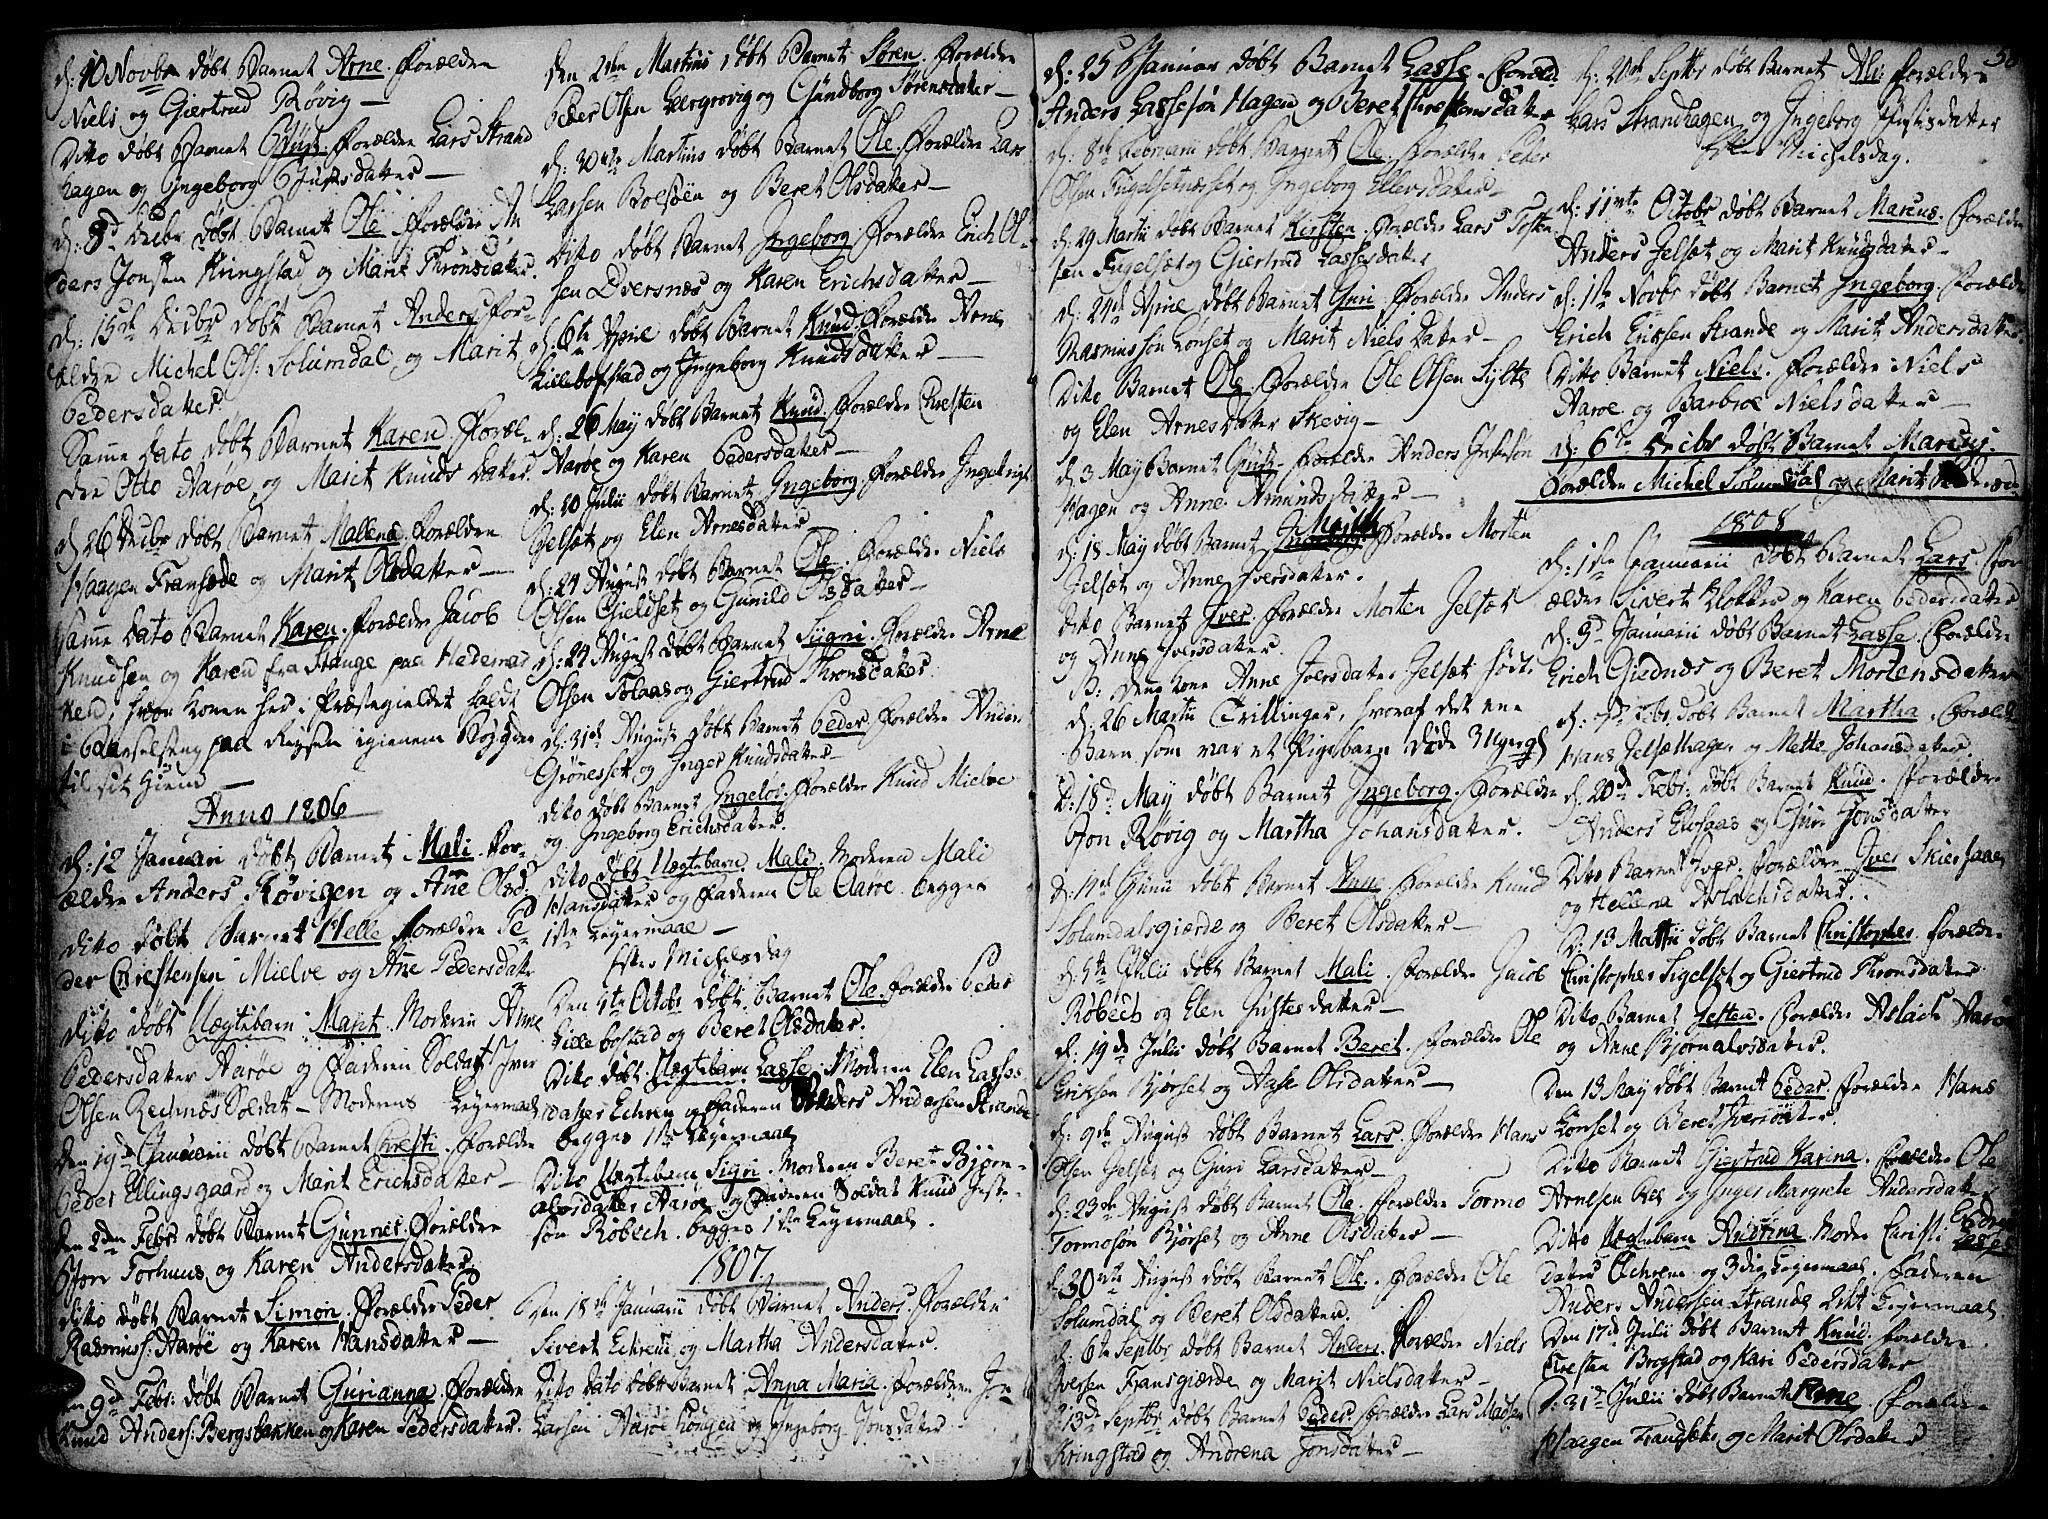 d: 10 Novbr døbt Barnet Arne. Forældre
Niels og Giertrud Røvig —
Dito døbt Barnet Gjust. Forældre Lars Strand
hagen og Ingeborg Justsdatter —
d: 8d Decbr døbt Barnet Ole Forældre An
ders Jonsen Kringstad og Marit Thronsdatter.
d: 15de Decbr døbt Barnet Anders For-
ældre Michel Ols: Solumdal og Marit
Pedersdatter.
Samme Dato døbt Barnet Karen. Foræl-
dre Otto Aarøe og Marit Knudsdatter
d 26 Decbr døbt Barnet Mallena. Forældre
Haagen Fransøde og Marit Olsdatter —
Samme Dato Barnet Karen. Forældre Jacob
Knudsen og Karen fra Stange paa Hedemar
ken, hvor Konen her i Præstegieldet holdt
i Barselseng paa Reysen igienem Bøygden
til sit Hiem —
Anno 1806
d: 12 Januari døbt Barnet Mali. For-
ældre Anders Røvigen og Ane Olsd:
dito døbt Barnet Helle Forældre Pe
der Christensen Mielve og Ane Pedersdatr
dito døbt Uægtebarn Marit. Moderen Anne
Pedersdatter Aarøe og Faderen Soldat Iver
Olsen Rechnæs Soldat — Moderens Leyermaal
den 19d Januarii døbt Barnet Christi. Forældre
Peder Ellingsgaard og Marit Erichsdatter —
den 2den Febr: døbt Barnet Gunner Forældre
Torhuus og Karen Andersdatter.
dito døbt Barnet Simon. Forældre Peder
Rasmuss: Aarøe og Karen Hansdatter —
den 9d Febr: døbt Barnet Gurianna Forældre
Knud Anders: Bergsbakken og Karen Pedersdatter.
den 2den Martii døbt Barnet Søren. Forældre
Peder Olsen Leergrovig og Gundborg Sørensdatter —
d: 30te Martius døbt Barnet Ole. Forældre Lars
Lassen Bolsøen og Beret Olsdatter —
Dito døbt Barnet Ingeborg Forældre Erich Ol-
sen Dversnes og Karen Erichsdatter —
d: 6te April døbt Barnet Knud. Forældre Arne
Lillebostad og Ingeborg Knudsdatter —
d: 26 May døbt Barnet Knud. Forældre Christen
Aarøe og Karen Pedersdatter —
d: 10 Julii døbt Barnet Ingeborg. Forældre Ingebrigt
Jelset og Elen Arnesdatter —
d: 24 August døbt Barnet Ole. Forældre Niels
Olsen Gieldset og Gunild Olsdatter —
d: 24 August døbt Barnet Sygni. Forældre Arne
Olsen Solaas og Giertrud Thronsdatter.
d: 31te August døbt Barnet Peder. Forældre Anders
Grønesset og Inger Knudsdatter —
dito døbt Barnet Ingeborg. Forældre Knud Mielve
og Ingeborg Erichsdatter.
dito døbt Uægtebarn. Mali. Moderen Mali
Hansdatter og Faderen Ole Aarøe. begges
1ste Leyermaal —
Efter Michelsdag
Den 4te Octobr døbt Barnet Ole. Forældre Peder
Lillebostad og Beret Olsdatter.
Dito døbt Uægtebarn Lasse. Moderen Elen Lasses
datter Echren og Faderen Anders Andersen Strande
begges 1ste Leyermaal
Dito Uægtebarn Sigri. Moderen Beret Bjørn-
alvsdatter Aarøe og Faderen Soldat Knud Juste-
søn Røbech. begges 1ste Leyermaal.
1807
Den 18de Januarii døbt Barnet Anders. Forældre
Sivert Echren og Martha Andersdatter.
Dito Dato døbt Barnet Anna Maria. Forældre Jon
Larsen Aarøe og Ingeborg Jonsdatter
d: 25 Januar døbt Barnet Lasse. Foræld:
Anders Lassesøn Hagen og Beret Christensdatter
d: 8de Februarii døbt Barnet Ole. Forældre Peder
Olsen Fugelsetnæset og Ingeborg Ellevsdatter —
d: 29 Martii døbt Barnet Kirsten. Forældre Lars Josten
sen Fugelset og Giertrud Lassesdatter
d: 24de April døbt Barnet Guri. Forældre Anders
Rasmussøn Lønset og Marit Nielsdatter —
Dito Barnet Ole. Forældre Ole Olsen Sylte
og Elen Arnesdatter Skevig —
d: 3 May Barnet Gjust. Forældre Anders
Hagen og Anne Amundsdatter —
d: 18 May døbt Barnet Marith Forældre Morten
Jelset og Anne Iversdatter.
dito Barnet Iver. Forældre Morten Jelset
og Anne Iversdatter.
B: denne Kone Anne Iversdatter Jelset fødte
d: 26 Martii Trillinger, hvoraf det ene
Barn som var et Pigebarn døde
D: 18d May døbt Barnet Ingeborg. Forældre
Jon Røvig og Martha Johansdatter.
d: 14d Junii døbt Barnet Anne. Forældre Knud
Solumdalsgiærde og Beret Olsdatter —
d: 5te Julii døbt Barnet Mali. Forældre Jacob
Røbech og Elen Justesdatter —
d: 19de Julii døbt Barnet Beret. Forældre Ole
Eriksen Bjørset og Aase Olsdatter —
d: 9de August døbt Barnet Lars. Forældre Hans
Olsen Jelset og Guri Larsdatter —
d: 23de August døbt Barnet Ole. Forældre Tormo
Tormosøn Bjørset og Anne Olsdatter —
d: 30te August døbt Barnet Ole. Forældre Ole
Solumdal og Beret Olsdatter.
d: 6te Septbr døbt Barnet Anders. Forældre Niels
Iversen Fransgiærde og Marit Nielsdatter —
d: 13de Septbr døbt Barnet Peder. Forældre Lars Madsen
Kringstad og Andrena Jonsdatter —
d: 20de Septbr døbt Barnet Ali. Forældre
Lars Strandhagen og Ingeborg Justisdatter
Efter Michelsdag.
d: 11te Octobr døbt Barnet Marcus. Forældre
Anders Jelset og Marit Knudsdatter —
d: 1ste Novbr døbt Barnet Ingeborg. Forældre
Erich Eriksen Strande og Marit Andersdatter.
Dito Barnet Niels. Forældre Niels
Aarøe og Barbroe Nielsdatter —
d: 6te Decbr døbt Barnet Marcus.
Forældre Michel Solumdal og Marit Pedersd:
1808
d: 1ste Januarii døbt Barnet Lars. For-
ældre Sivert Klokker og Karen Pedersdatter
d: 3d Januarii døbt Barnet Lasse. Forældre
Erich Giednæs og Beret Mortensdatter
d: 7de Febr. døbt Barnet Martha. Foræld:
Hans Jelsethagen og Mette Johansdatter.
d: 20de Febr: døbt Barnet Knud. Forældre
Anders Elvsaas og Guri Jonsdatter
Dito Barnet Iver. Forældre Iver Skiersaae
og Hellena Aslachsdatter.
D: 13 Martii døbt Barnet Christopher. Forældre
Christopher Sigelset og Giertrud Thronsdatter
Dito Barnet Josten. Forældre Aslach Aarøe
og Anne Bjørnalvsdatter.
Den 13 May døbt Barnet Peder. Forældre Hans
Lønset og Beret Iversdatter.
Dito Barnet Giertrud Karina. Forældre Ole
Arnesen Røe og Inger Margrete Andersdatter
Dito Uægtebarn Andrina. Moder Christi Endres
datter Echrem og 3die Leyermaal. Faderen
Anders Andersen Strande 2det Leyermaal
Den 17d Julii døbt Barnet Knud. Forældre
Christen Brogstad og Kari Pedersdatter
D: 31te Julii døbt Barnet Arne. Forældre
Haagen Fransøde og Marit Olsdatter.